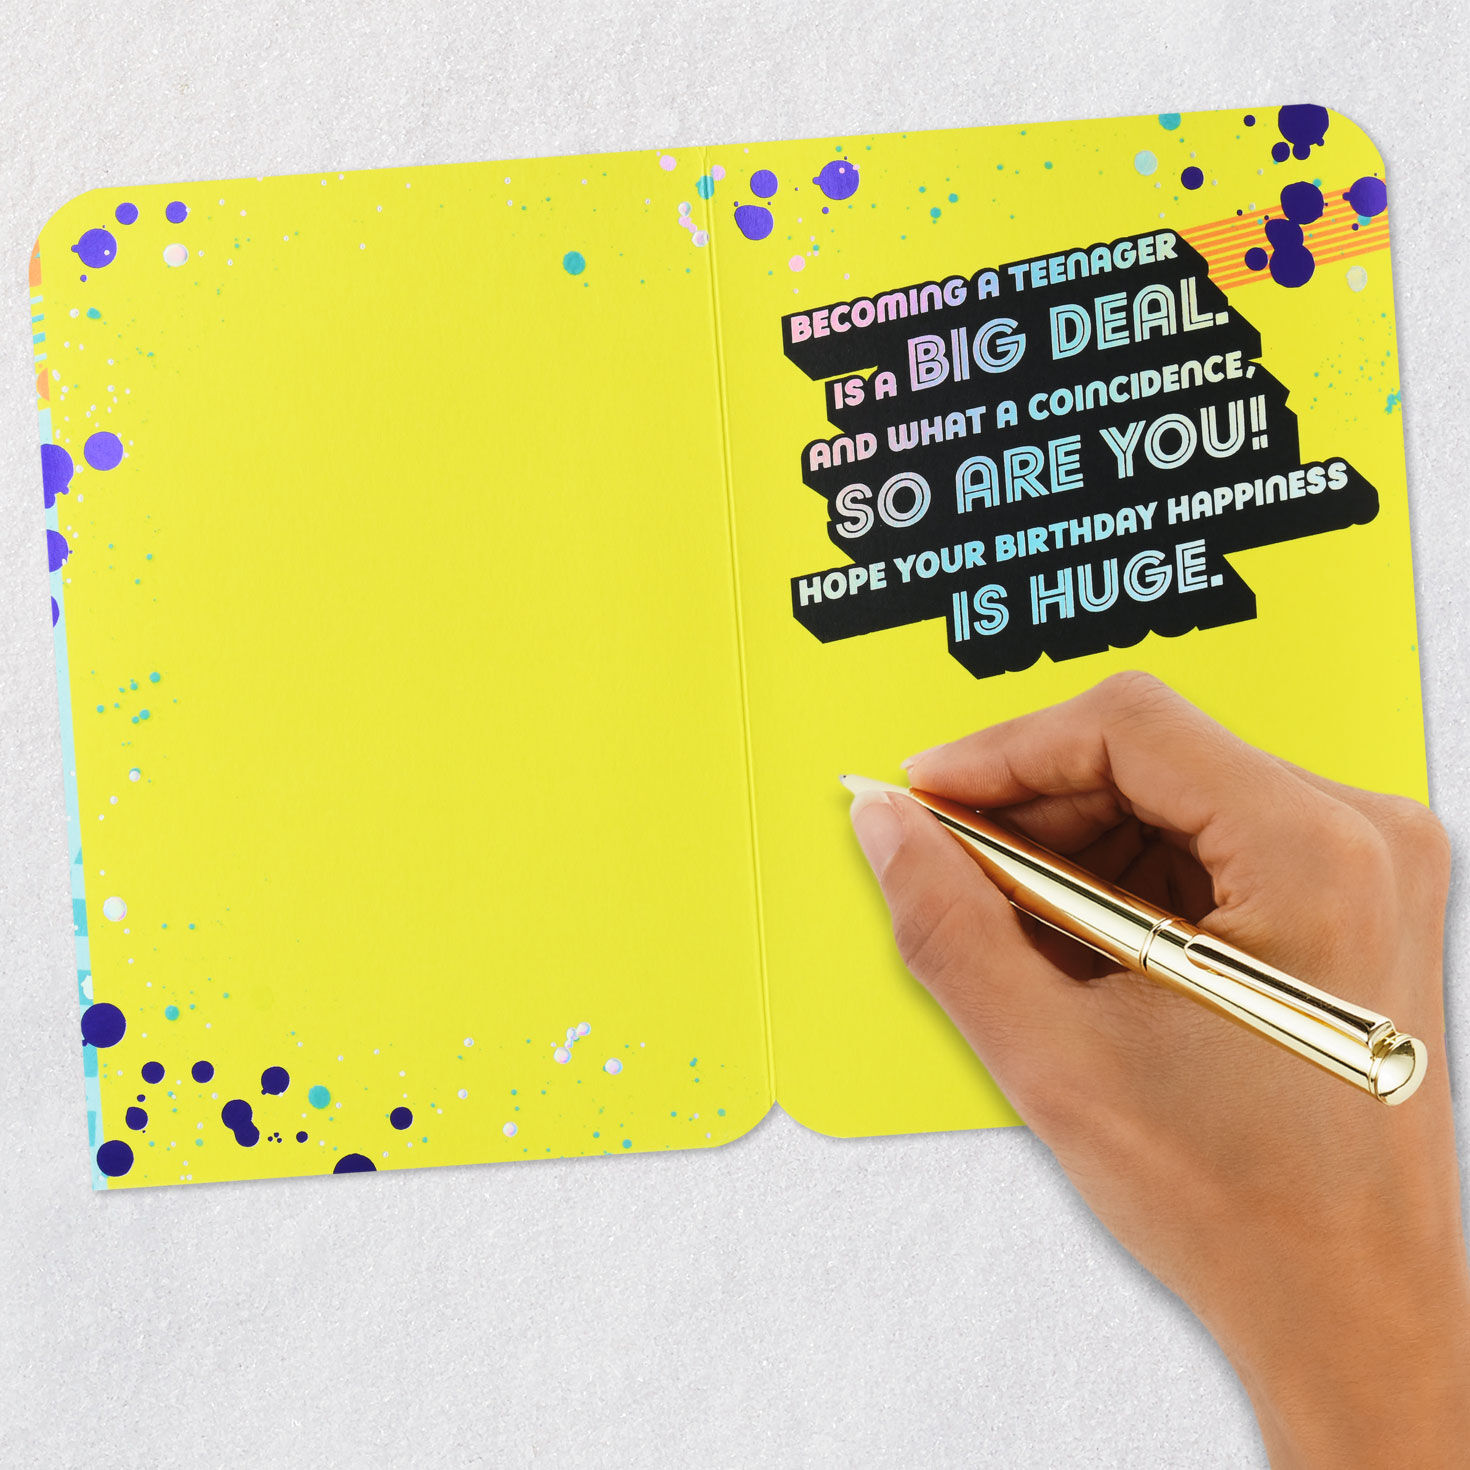 BECOMING A TEENAGER
IS A BIG DEAL.
AND WHAT A COINCIDENCE,
SO ARE YOU!
HOPE YOUR BIRTHDAY HAPPINESS
IS HUGE.